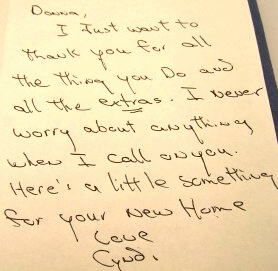 Donna,
I Just want to
thank you for all
the thing you Do and
all the extras. I never
worry about anything
when I call on you.
Here's a little something
for your New Home
Love
Cynd.